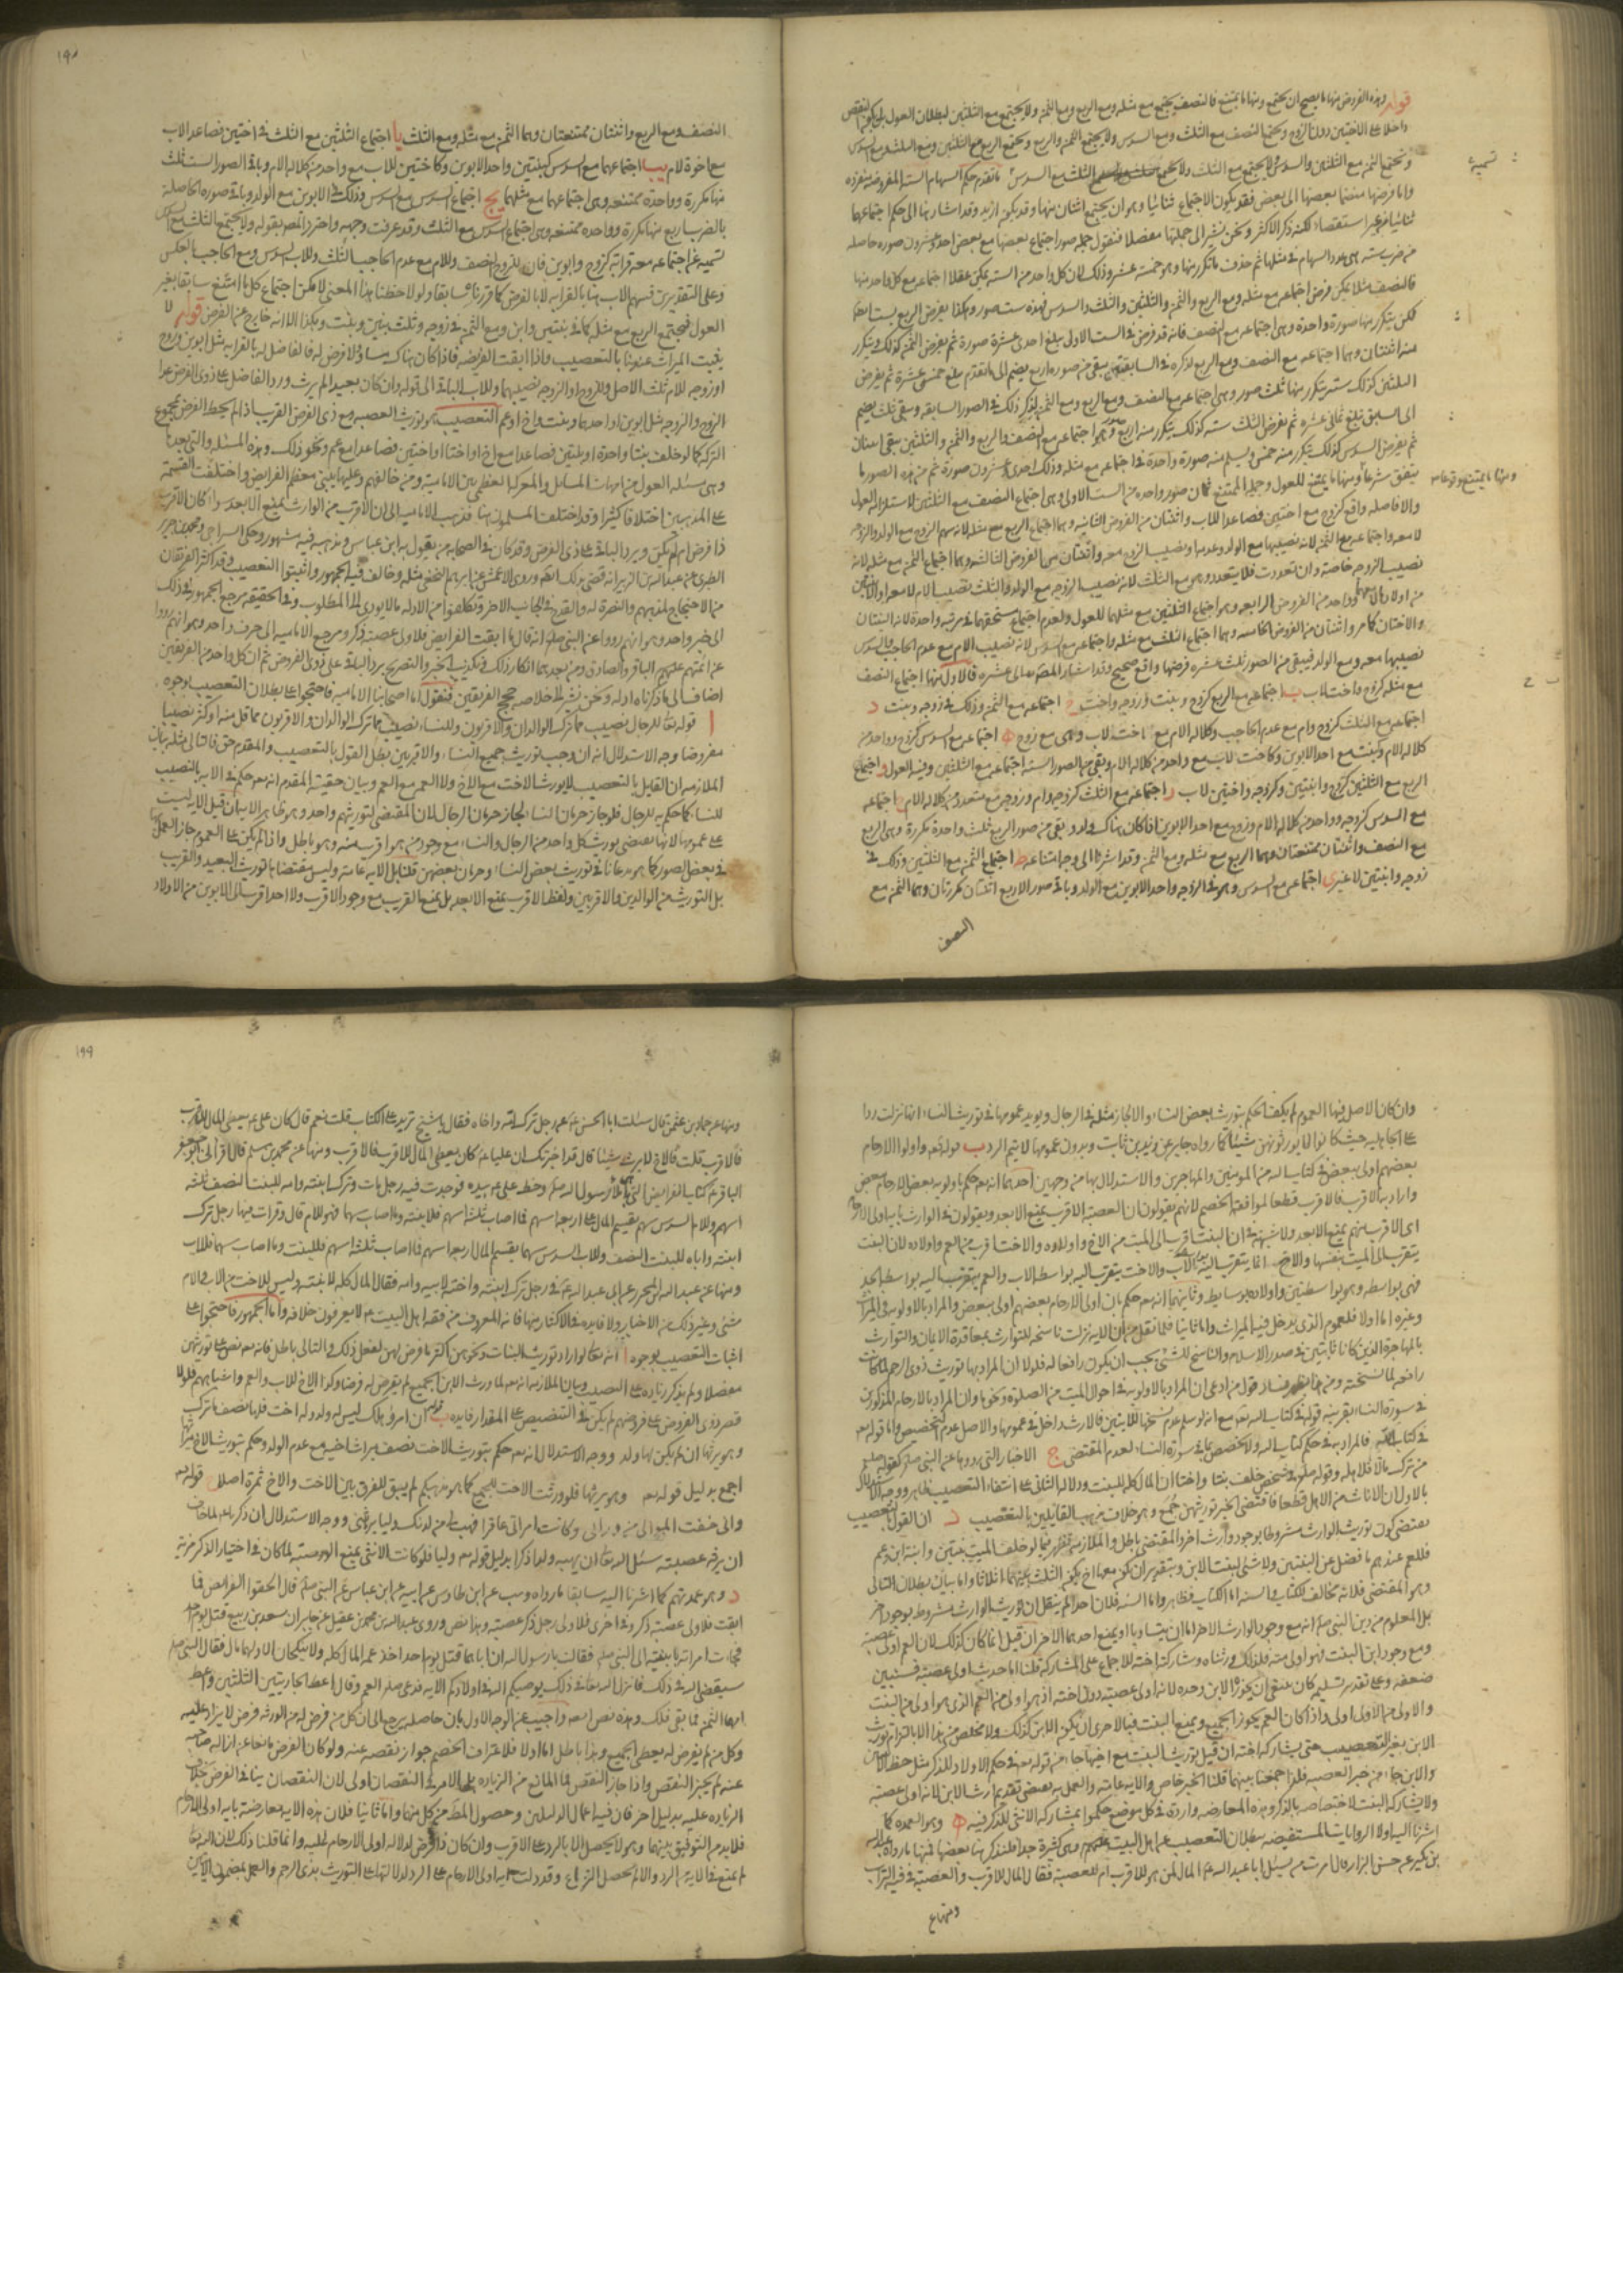 قوله وهذه الفروض منها ما يصح ان يجتمع ومنها ما يمتنع فالنصف يجتمع مع مثله ومع الربع ومع الثمن ولا يجتمع مع الثلثين لبطلان العول بل يكون النقص
داخلا على الاختين دون الزوج ويجتمع النصف مع الثلث ومع السدس ولا يجتمع الثمن والربع ويجتمع الربع مع الثلثين ومع الثلث ومع السدس
ويجتمع الثمن مع الثلثين والسدس ولا يجتمع مع الثلث ولا الثلث مع السدس تسمية ما تقدم حكم السهام الستة المفروضة منفردة
واما فرضها منضما بعضها الى بعض فقد يكون الاجتماع ثنائيا وهو ان يجتمع اثنان منها وقد يكون ازيد وقد اشار هنا الى حكم اجتماعها
ثنائيا من غير استقصاء لكنه ذكر الاكثر ونحن نشير الى جملتها مفصلا فنقول جملة صور اجتماع بعضها مع بعض احد وعشرون صورة حاصلة
من ضرب ستة هي عدد السهام في مثلها ثم حذف ما تكرر منها وهو خمسة عشر وذلك لان كل واحد من الستة يمكن عقلا اجتماعه مع كل واحد منها
فالنصف مثلا يمكن فرض اجتماعه مع مثله ومع الربع والثمن والثلثين والثلث والسدس فهذه ست صور وهكذا يفرض الربع ست ايضا
لكن يتكرر منها صورة واحدة وهي اجتماعه مع النصف فانه قد فرض في الست الاولى يبلغ احدى عشرة صورة ثم يفرض الثمن كذلك ويتكرر
منه اثنتان وهما اجتماعه مع النصف ومع الربع لذكره في السابقتين يبقى من صوره اربع يضم الى ما تقدم يبلغ خمس عشرة ثم يفرض
الثلثين كذلك ستة يتكرر منها ثلث صور وهي اجتماعه مع النصف ومع الربع ومع الثمن لذكر ذلك في الصور السابقة ويبقى ثلث يضم
الى ما سبق تبلغ ثماني عشرة ثم يفرض الثلث ستة كذلك يتكرر منه اربع وهو اجتماعه مع النصف والربع والثمن والثلثين يبقى اثنتان
ثم يفرض السدس كذلك يتكرر منه خمس ويسلم منه صورة واحدة في اجتماعه مع مثله وذلك احدى وعشرون صورة ثم من هذه الصور ما
يتفق شرعا ومنها ما يمتنع للعول وجملة الممتنع ثمان صور واحدة من الست الاولى وهي اجتماع النصف مع الثلثين لاستلزامه العول
والا فاصله واقع كزوج مع اختين فصاعدا للاب واثنتان من الفروض الثانية وهما اجتماع الربع مع مثله لانه سهم الزوج مع الولد والزوجة
لا معه واجتماعه مع الثمن لانه نصيبها مع الولد وعدمه او نصيب الزوج معه واثنتان من الفروض الثالثة وهما اجتماع الثمن مع مثله لانه
نصيب الزوجة خاصة وان تعددت فلا يتعدد وهي مع الثلث لانه نصيب الزوجة مع الولد والثلث نصيب الام لا معه او الاثنين
من اولادها وواحد من الفروض الرابعة وهو اجتماع الثلثين مع مثلهما للعول ولعدم اجتماع مستحقهما في مرتبة واحدة لانه البنتان
والاختان كما مر واثنتان من الفروض الخامسة وهما اجتماع الثلث مع مثله واجتماعه مع السدس لانه نصيب الام مع عدم الحاجب والسدس
نصيبها معه ومع الولد فيبقى من الصور ثلث عشرة فرضها واقع صحيح وقد اشار المصنف الى عشرة فالاول منها اجتماع النصف
مع مثله كزوج واخت لاب ب اجتماعه مع الربع كزوج وبنت وزوجة واخت ج اجتماعه مع الثمن وذلك في زوجة وبنت د
اجتماعه مع الثلث كزوج وام مع عدم الحاجب وكلالة الام مع اخت لاب وهي مع زوج ه اجتماعه مع السدس كزوج وواحد من
كلالة الام وبنت مع احد الابوين وكاخت لاب مع واحد من كلالة الام وبقي من الصور الستة اجتماعه مع الثلثين وفيه العول و اجتماع
الربع مع الثلثين كزوج وابنتين وكزوجة واختين لاب ز اجتماعه مع الثلث كزوجة وام وزوجة مع متعدد من كلالة الام ح اجتماعه
مع السدس كزوجة وواحد من كلالة الام وزوج مع احد الابوين اذا كان هناك ولد وبقي من صور الربع ثلث واحدة مكررة وهي الربع
مع النصف واثنتان ممتنعتان وهما الربع مع مثله ومع الثمن وقد اشرنا الى وجه امتناعه ط اجتماع الثمن مع الثلثين وذلك في
زوجة وابنتين لا غير ى اجتماعه مع السدس وهو في الزوجة واحد الابوين مع الولد وباقي صوره الاربع اثنتان مكررتان وهما الثمن مع
النصف
تسمية
ومنها ما يمتنع
١٩٨
النصف ومع الربع واثنتان ممتنعتان وهما الثمن مع مثله ومع الثلث يا اجتماع الثلثين مع الثلث في اختين فصاعدا لاب
مع اخوة لام يب اجتماعهما مع السدس كبنتين واحد الابوين وكاختين للاب مع واحد من كلالة الام وباقي الصور الست ثلث
منها مكررة وواحدة ممتنعة وهي اجتماعهما مع مثلهما يج اجتماع السدس مع السدس وذلك في الابوين مع الولد وباقي صوره الحاصلة
بالضرب اربع منها مكررة وواحدة ممتنعة وهي اجتماع السدس مع الثلث وقد عرفت وجهه واحترز المصنف بقوله ولا يجتمع الثلث مع السدس
تسمية عن اجتماعه معه قرابة كزوج وابوين فان للزوج النصف وللام مع عدم الحاجب الثلث وللاب السدس ومع الحاجب بالعكس
وعلى التقديرين فسهم الاب هنا بالقرابة لا بالفرض كما قررناه سابقا ولو لاحظنا هذا المعنى لامكن اجتماع كل ما امتنع سابقا بغير
العول فيجتمع الربع مع مثله كما في بنتين وابن ومع الثمن في زوجة وثلث بنين وبنت وهكذا الا انه خارج عن الفرض قوله لا
يثبت الميراث عندنا بالتعصيب واذا ابقت الفريضة فاذا كان هناك مساو لا فرض له فالفاضل له بالقرابة مثل ابوين وزوج
او زوجة للام ثلث الاصل وللزوج او الزوجة نصيبهما وللاب الباقي الى قوله وان كان بعيدا لم يرث ورد الفاضل على ذوي الفرض عدا
الزوج والزوجة مثل ابوين او احدهما وبنت واخ او عم التعصيب هو توريث العصبة مع ذي الفرض القريب اذا لم يحط الفرض بمجموع
التركة كما لو خلف بنتا واحدة او بنتين فصاعدا مع اخ او اختا او اختين فصاعدا مع عم ونحو ذلك وهذه المسئلة والتي بعدها
وهي مسئلة العول من امهات المسائل والمعركة العظمى بين الامامية ومن خالفهم وعليها يبتني معظم الفرائض واختلفت القسمة
على المذهبين اختلافا كثيرا وقد اختلف المسلمون هنا فذهب الامامية الى ان الاقرب من الوارث يمنع الابعد وا كان الاقرب
ذا فرض ام لم يكن ويرد الباقي على ذي الفرض وقد كان في الصحابة من يقول به ابن عباس ومذهبه فيه مشهور وحكى الساجي ومحمد بن جرير
الطبري عن عبد الله بن الزبير انه قضى بذلك ايضا وروى الاعمش عن ابراهيم النخعي مثله وخالف فيه الجمهور واثبتوا التعصيب وقد اكثر الفريقان
من الاحتجاج لمذهبهم والنصرة له والقدح في الجانب الاخر وتكلفوا من الادلة ما لا يؤدي الى المطلوب وفي الحقيقة مرجع الجمهور في ذلك
الى خبر واحد وهو انهم رووا عن النبي صلع انه قال ما ابقت الفرايض فلاولى عصبة ذكر ومرجع الامامية الى حرف واحد وهو انهم رووا
عن ائمتهم عليهم الباقر والصادق ومن بعدهما انكار ذلك في تكذيب الخبر والتصريح برد الباقي على ذوي الفروض ثم ان كل واحد من الفريقين
اضاف الى ما ذكرناه ادلة ونحن نشير الى خلاصة حجج الفريقين فنقول اما اصحابنا الامامية فاحتجوا على بطلان التعصيب بوجوه
ا قوله تعالى للرجال نصيب مما ترك الوالدان والاقربون وللنساء نصيب مما ترك الوالدان والاقربون مما قل منه او كثر نصيبا
مفروضا وجه الاستدلال انه ان وجب توريث جميع النساء والاقربين بطل القول بالتعصيب والمقدم حق فالتالي مثله بيان
الملازمة ان القايل بالتعصيب لا يورث الاخت مع الاخ ولا العمة مع العم وبيان حقية المقدم انه تعالى حكم في الاية بالنصيب
للنساء كما حكم به للرجال فلو جاز حرمان النساء لجاز حرمان الرجال لان المقتضي لتوريثهم واحد وهو ظاهر الاية فان قيل الاية ليست
على عمومها لانها تقتضي توريث كل واحد من الرجال والنساء مع وجود من هو اقرب منه وهو باطل واذا لم يكن على العموم جاز العمل بها
في بعض الصور كما هو مدعانا في توريث بعض النساء وحرمان بعضهن قلنا بل الاية عامة وليس مقتضاها توريث البعيد والقريب
بل التوريث من الوالدين والاقربين ولفظ الاقرب يمنع الابعد بل يمنع القريب مع وجود الاقرب ولا احد اقرب الى الابوين من الاولاد
وان كان الاصل فيها العموم لم يكف الحكم بتوريث بعض النساء والا لجاز مثله في الرجال ويؤيد عمومها في توريث النساء انها نزلت ردا
على الجاهلية حيث كانوا لا يورثونهن شيئا كما رواه جابر عن زيد بن ثابت وبدون عمومها لا يتم الرد ب قوله تعالى واولوا الارحام
بعضهم اولى ببعض في كتاب الله من المؤمنين والمهاجرين والاستدلال بها من وجهين احدهما انه تعالى حكم باولوية بعض الارحام ببعض
واراد به الاقرب فالاقرب قطعا لموافقة الخصم لانهم يقولون ان العصبة الاقرب يمنع الابعد ويقولون في الوارث باية اولى الارحام
اى الاقرب منهم يمنع الابعد ولا شبهة في ان البنت اقرب الى الميت من الاخ واولاده والاخت اقرب من العم واولاده لان البنت
يتقرب الى الميت بنفسها والاخ انما يتقرب اليه بواسطة الاب والاخت يتقرب اليه بواسطة الاب والعم يتقرب اليه بواسطة الجد
فهي بواسطة وهو بواسطتين واولاده بوسايط وثانيهما انه تعالى حكم بان اولى الارحام بعضهم اولى ببعض والمراد به الاولوية في الميراث
وغيره اما اولا فلعموم الذي يدخل فيه الميراث واما ثانيا فلما نقل من ان الاية نزلت ناسخة للتوارث بمعاقدة الايمان والتوارث
بالمهاجرة الذين كانا ثابتين في صدر الاسلام والناسخ للشئ يجب ان يكون رافعا له فلولا ان المراد بها توريث ذوي الرحم لما كانت
رافعة لما نسخته ومن هنا يظهر فساد قول من ادعى ان المراد بالاولوية في احوال الميت من الصلوة ونحوها وان المراد بالارحام المذكورين
في سورة النساء بقرينة قوله في كتاب الله تعالى مع انه لو سلم عدم نسخها للاثنين فالارث داخل في عمومها والاصل عدم التخصيص واما قوله تعالى
في كتاب الله فالمراد به في حكم كتاب الله ولا تخصيص بما في سورة النساء لعدم المقتضي ج الاخبار التي رووها عن النبي صلع كقوله صلع
من ترك مالا فلاهله وقوله صلع في شخص خلف بنتا واختا ان المال كله للبنت ودلالة الثاني على انتفاء التعصيب ظاهر ووجه الاستدلال
بالاول ان الاناث من الاهل قطعا فاقتضى الخبر توريثهن جمع وهو خلاف مذهب القايلين بالتعصيب د ان القول بالتعصيب
يقتضي كون توريث الوارث مشروطا بوجود وارث اخر والمقتضي باطل والملازمة تظهر فيما لو خلف الميت بنتين وابنة ابن وعم
فللعم عندهم ما فضل عن البنتين ولا شئ لبنت الابن وبتقدير ان يكون معها اخ يكون الثلث بينهما اثلاثا واما بيان بطلان التالي
وهو المقتضي فلانه مخالف للكتاب والسنة اما الكتاب فظاهر واما السنة فلان احدا لم ينقل ان توريث الوارث مشروط بوجود اخر
بل المعلوم من دين النبي صلع انه مع وجود الوارث الاخر اما ان يتساويا او يمنع احدهما الاخر فان قيل انما كان كذلك لان العم اولى عصبة
ومع وجود ابن البنت فهو اولى منه فلذلك ورثناه وشاركته اخته للاجماع على المشاركة قلنا اما حديث اولى عصبة فسنبين
ضعفه وعلى تقدير تسليمه كان ينبغي ان يحوزه الابن وحده لانه اولى عصبة دون اخته اذ هو اولى من العم الذي هو اولى من البنت
والاولى من الاولى اولى واذا كان العم يحوز الجميع ويمنع البنت فبالاحرى ان يكون الابن كذلك ولا مخلص من هذا الا بالتزام توريث
الابن بغير التعصيب حتى يشاركه اخته ان قيل توريث البنت مع اخيها جاء من قوله تعالى في حكم الاولاد للذكر مثل حظ الانثيين
والابن جاء من خبر العصبة فلم اجمعنا بينهما قلنا الخبر خاص والاية عامة والعمل به يقتضي تقديم ارث الابن لانه اولى عصبة
ولا يشاركه البنت لاختصاصه بالذكر وهذه المعارضة واردة في كل موضع حكموا بمشاركة الانثى للذكر فيه ه وهو العمدة كما
اشرنا اليه اولا الروايات المستفيضة ببطلان التعصيب عن اهل البيت عليهم وهي كثيرة جدا فلنذكر هنا بعضها فمنها ما رواه عبد الله
بن بكير عن حسين البزاز قال امرت من يسئل ابا عبد الله ع المال لمن هو للاقرب ام للعصبة فقال المال للاقرب والعصبة في فيه التراب
ومنها
١٩٩
ومنها عن حماد بن عثمن قال سئلت ابا الحسن ع عن رجل ترك امه واخاه فقال يا شيخ تريد على الكتاب قلت نعم قال كان علي ع يعطي المال للاقرب
فالاقرب قلت فالاخ لا يرث شيئا قال قد اخبرتك ان عليا ع كان يعطي المال للاقرب فالاقرب ومنها عن محمد بن مسلم قال اقراني ابو جعفر
الباقر ع كتاب الفرايض التي هي املاء رسول الله صلع وخط علي ع بيده فوجدت فيه رجل مات وترك ابنته وامه للبنت النصف ثلثة
اسهم وللام السدس سهم يقسم المال على اربعة اسهم فما اصاب ثلثة اسهم فلابنته وما اصاب سهما فهو للام قال وقرات فيها رجل ترك
ابنته واباه للبنت النصف وللاب السدس سهما يقسم المال اربعة اسهم فما اصاب ثلثة اسهم فللبنت وما اصاب سهما فللاب
ومنها عن عبد الله بن المحرر عن ابي عبد الله ع في رجل ترك ابنته واخته لابيه وامه فقال المال كله لابنته وليس للاخت من الاب والام
شئ وغير ذلك من الاخبار ولا فايدة في الاكثار منها فانه المعروف من فقه اهل البيت ع لا يعرفون خلافه واما الجمهور فاحتجوا على
اثبات التعصيب بوجوه ا انه تعالى لو اراد توريث البنات ونحوهن اكثر ما فرض لهن لفعل ذلك والتالي باطل فانه تعالى نص على توريثهن
مفصلا ولم يذكر زيادة على النصيب وبيان الملازمة انه تعالى لما ورث الابن الجميع لم يفرض له فرضا وكذا الاخ للاب والعم واشباههم فلولا
قصر ذوي الفروض على فروضهم لم يكن في التنصيص على المقدار فايدة ب قوله ان امرؤ هلك ليس له ولد وله اخت فلها نصف ما ترك
وهو يرثها ان لم يكن لها ولد ووجه الاستدلال انه تعالى حكم بتوريث الاخت نصف ميراث اخيها مع عدم الولد وحكم بتوريث الاخ ميراثها
اجمع بدليل قوله تعالى وهو يرثها فلو ورثت الاخت الجميع كما هو مذهبكم لم يبق للفرق بين الاخت والاخ ثمرة اصلا ج قوله تعالى
واني خفت الموالي من ورائي وكانت امراتي عاقرا فهب لي من لدنك وليا يرثني ووجه الاستدلال ان زكريا ع لما خاف
ان يرثه عصبته سئل الله تعالى ان يهبه ولدا ذكرا بدليل قوله تعالى وليا فلو كانت الانثى يمنع العصبة لما كان في اختيار الذكر مزية
د وهو عمدتهم كما اشرنا اليه سابقا ما رواه وهيب عن ابن طاوس عن ابيه عن ابن عباس عن النبي صلع قال الحقوا الفرايض فما
ابقت فلاولى عصبة ذكر وفي اخرى فلاولى رجل ذكر عصبة وهذا نص وروى عبد الله بن محمد بن عقيل عن جابر ان سعد بن ربيع قتل يوم احد
فجاءت امراته بابنتيه الى النبي صلع فقالت يا رسول الله ان اباهما قتل يوم احد واخذ عمهما المال كله ولا ينكحان الا ولهما مال فقال النبي صلع
سيقضي الله في ذلك فانزل الله تعالى في ذلك يوصيكم الله في اولادكم الاية فدعى صلع العم وقال اعط الجاريتين الثلثين واعط
امهما الثمن وما بقي فلك وهذه نص ايضا واجيب عن الوجه الاول بان حاصله يرجع الى ان كل من فرض له من الورثة فرض لا يزاد عليه
وكل من لم يفرض له يعطي الجميع وهذا باطل اما اولا فلاعتراف الخصم جواز نقصه عنه ولو كان الفرض مانعا عن ازالة صاحبه
عنه لم يجز النقص واذا جاز النقص فما المانع من الزيادة بل الامر في النقصان اولى لان النقصان ينافي الفرض بخلاف
الزيادة عليه بدليل اخر فان فيه اعمال الدليلين وحصول المطلوب من كل منهما واما ثانيا فلان هذه الاية معارضة باية اولى الارحام
فلا بد من التوفيق بينهما وهو لا يحصل الا بالرد على الاقرب وان كان ذا فرض لدلالة اولى الارحام عليه وانما قلنا ذلك لان الله تعالى
لم يمنع في الاية من الرد والا لم يحصل النزاع وقد دلت اية اولى الارحام على الرد لدلالتها على التوريث بذي الرحم والعمل بمضمون الايتين